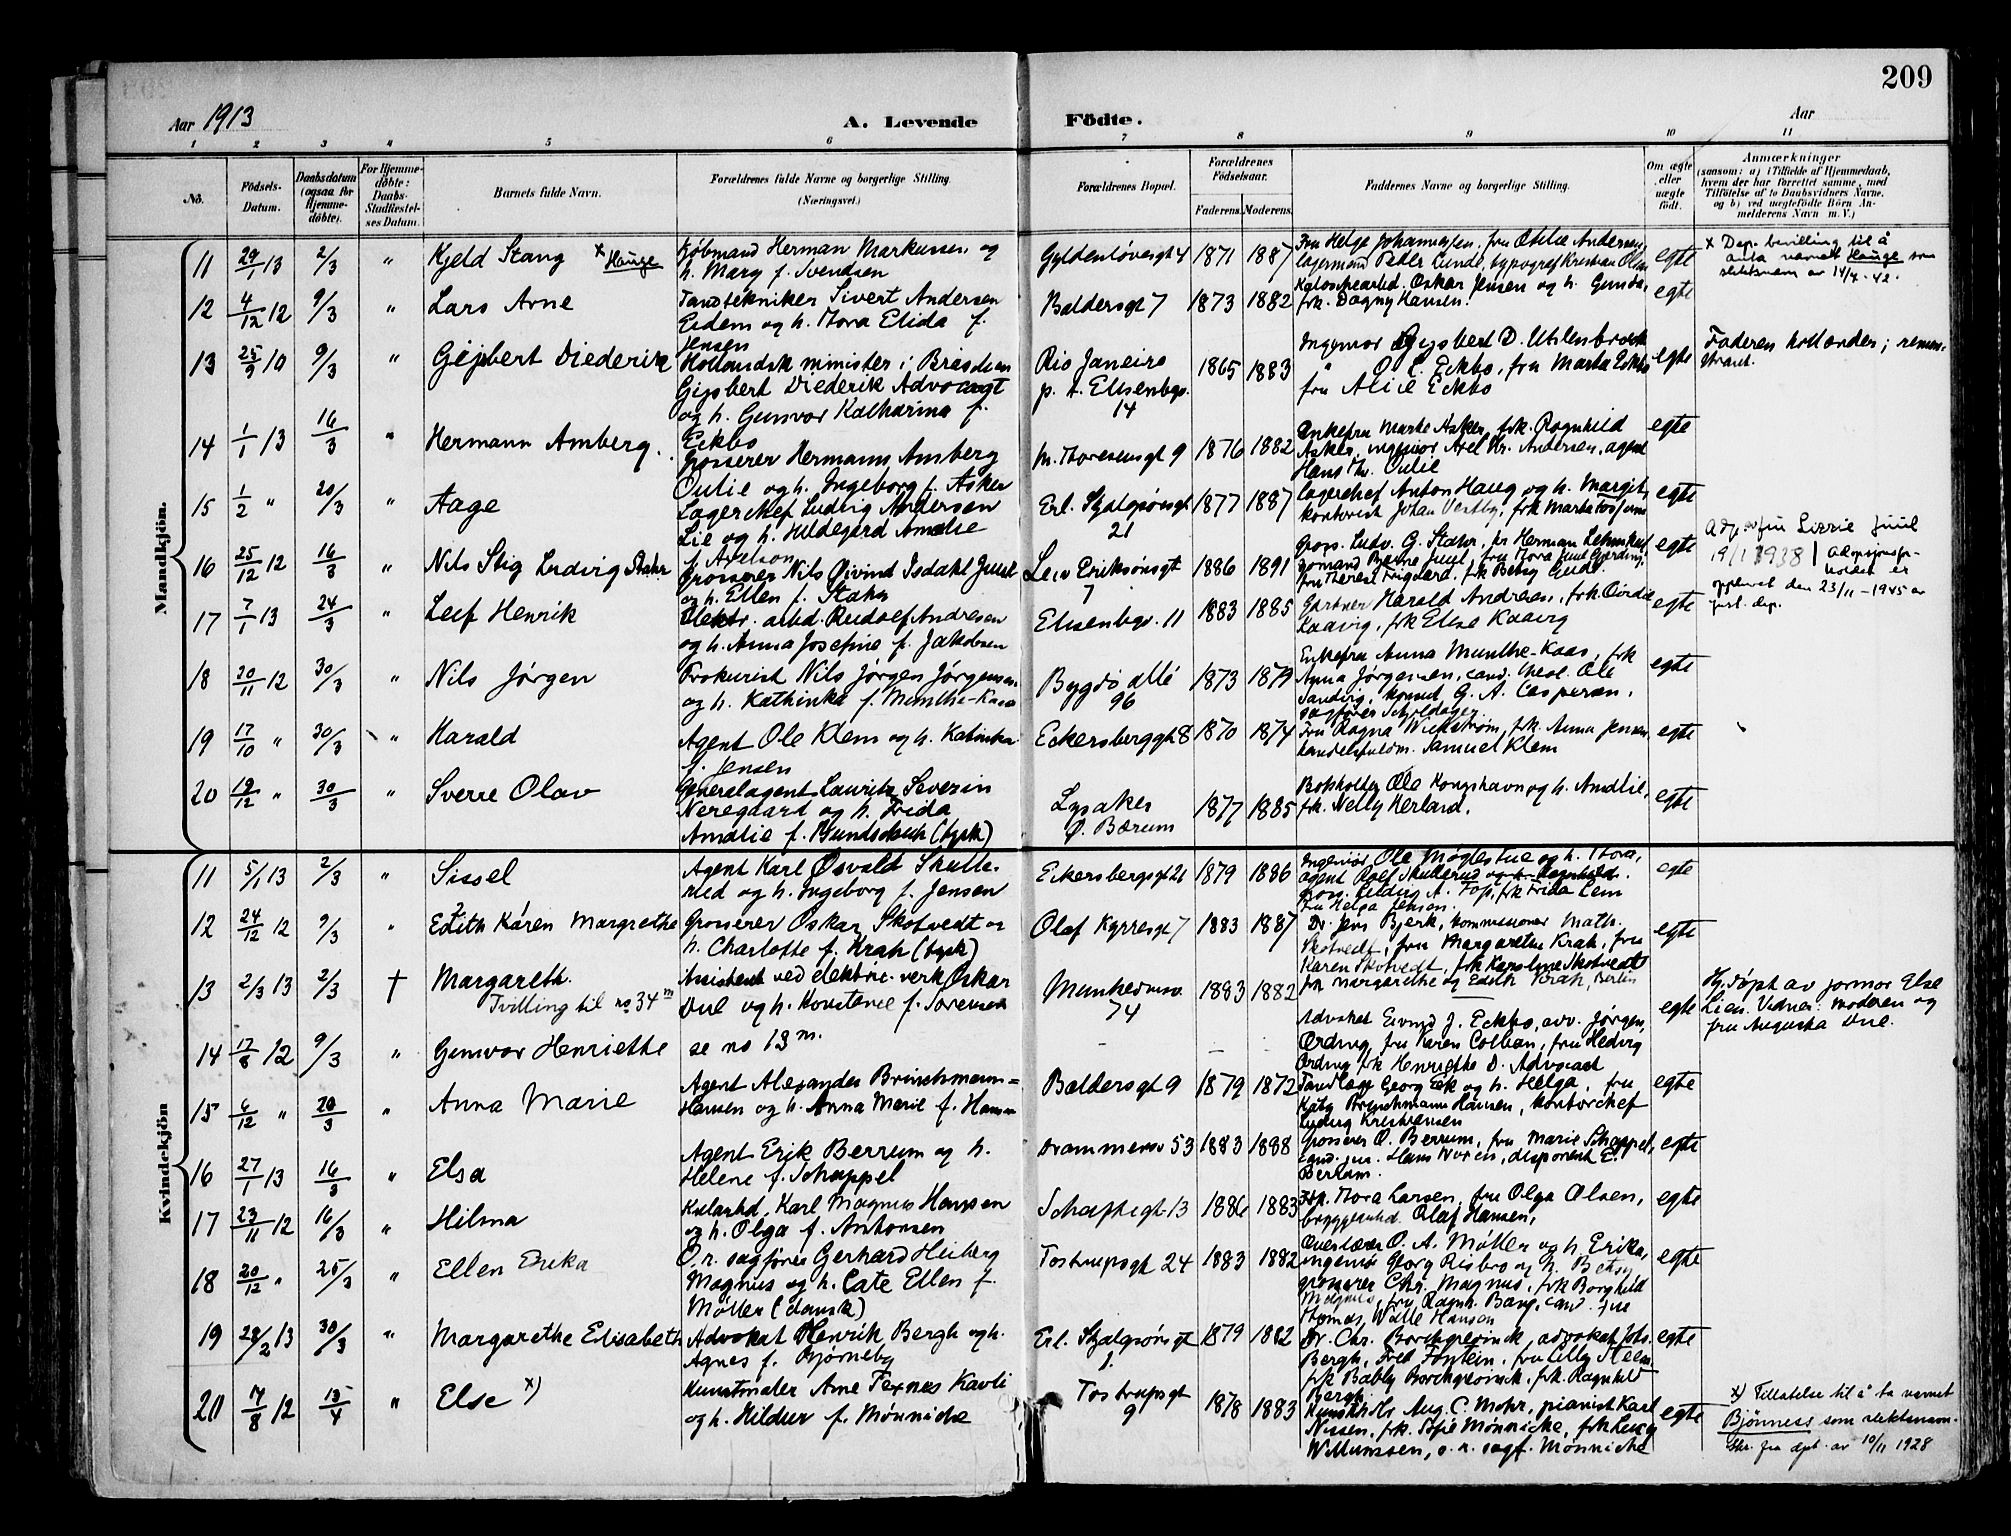 209
Aar 1913
A. Levende
Födte.
Aar
1 2 3 4 5 6 7 8 9 10 11
No.
Födsels-
Datum.
Daabsdatum
(ogsaa for
Hjemme-
döbte).
For Hjemme-
döbte:
Daabs-
Stadfæstel-
ses Datum.
Barnets fulde Navn.
Forældrenes fulde Navne og borgerlige Stilling.
(Næringsvei.)
Forældrenes Bopæl.
Forældrenes
Födselsaar.
Faderens. Moderens.
Faddernes Navne og borgerlige Stilling.
Om ægte
eller
uægte
födt.
Anmærkninger
(saasom: a) i Tilfælde af Hjemmedaab,
hvem der har forrettet samme, med
Tilföielse af to Daabsvidners Navne,
og b) ved uægtefödte Börn An-
melderens Navn m. V.)
Mandkjön.
11 29/1 13 2/3 " Kjeld Stang x Hauge
Kjøbmand Herman Markussen og
h. Mary f. Svendsen
Gyldenløvesgt 4 1871 1887
Fru Helga Johannesen, fru Otilie Andersen,
lagermand Peder Lunde, typograf Kristian Olsen
egte
x Dep. bevilling til å
anta navnet Hauge som
slektsnavn av 14/4-42.
12 4/12 12 9/3 " Lars Arne
Tandtekniker Sivert Andersen
Eidem og h. Thora Elida f.
Jensen
Baldersgt 7 1873 1882
Oskar Jensen og h. Gunda,
frk. Dagny Hansen.
egte
13 25/9 10 9/3 " Gijsbert Diederik
Hollandsk minister i Brasilien
Gijsbert Diederik Advocaat
og h. Gunvor Katharina f.
Eckbo
Rio Janeiro
p. t. Elisenbgv.
14
1865 1883
Ingeniør Gijsbert D. Uhlenbroek
" O. E. Eckbo, fru Marta Eckbo
fru Alice Eckbo
egte
Faderen hollænder; remon-
strant.
14 1/1 13 16/3 " Hermann Amberg.
Grosserer Hermann Amberg
Oulie og h. Ingeborg f. Asker
M. Thoresensgt 9 1876 1882
Enkefru Marte Asker, frk. Ragnhild
Asker, ingeniør Axel Kr. Andersen, agent
Hans Th. Oulie
egte
15 1/2 " 20/3 " Aage
Lagerchef Ludvig Andersen
Lie og h. Hildegard Amalie
f. Axelson
Erl. Skjalgsønsgt
21
1877 1887
lagerchef Anton Haug og h. Margit,
kontorist Johan Vestby, frk Marta
egte
16 25/12 12 16/3 " Nils Stig Ludvig Stahr
Grosserer Nils Øivind Isdahl Juul
og h. Ellen f. Stahr
Leiv Eriksønsgt
7
1886 1891
Gros. Ludv. G. Stahr, hr Herman Lehmkuhl
Bjarne Juul, fru Thora Juul
fru Therese frk Betsy
egte
Adp. av fru Lizzie Juul
19/1 1938 | Adopsjonsfor-
holdet er
opphevet den 23/11-1945 av
just. dep.
17 7/1 13 24/3 " Leif Henrik
Elektr. arbd. Rudolf Andresen
og h. Anna Josefine f. Jakobsen
Elisenbgv. 11 1883 1885
Gartner Harald Andresen, frk.
Kaavig, frk Else Kaavig
egte
18 20/11 12 30/3 " Nils Jørgen
Prokurist Nils Jørgen Jørgensen
og h. Kathinka f. Munthe-Kaas
Bygdø allé
96
1873 1879
Enkefru Anna Munthe-Kaas, frk
Anna Jørgensen, cand. theol. Ole
Sandvig, konsul G. A. Caspersen,
sagfører
egte
19 17/10 " 30/3 " Harald
Agent Ole Klem og h. Katinka
f. Jensen
Eckersberggt 8 1870 1874
Fru Ragna Wickstrøm, frk. Anna Jensen,
handelsfuldm. Samuel Klem
egte
20 19/12 " 30/3 " Sverre Olav
Generalagent Lauritz Severin
Neregaard og h. Frida
Amalie f. Gundschuh (tysk)
Lysaker
Ø. Bærum
1877 1885
Bokholder Ole Kongshavn og h. Amalie,
frk. Nelly Herland.
egte
Kvindekjön
11 5/1 13 2/3 " Sissel
Agent Karl Osvald Skulle-
rud og h. Ingeborg f. Jensen
Eckersbergsgt 21 1879 1886
Ingeniør Ole Møglestue og h. Thora,
agent Rolf Skullerud og h. Ragnhild.
gros. Ludvig A. frk Frida Lem
fru Helga Jensen.
egte
12 24/12 12 9/3 " Edith Karen Margrethe
Grosserer Oskar Skotvedt og
h. Charlotte f. Krah (tysk)
Olaf Kyrresgt 7 1883 1887
Dr. Jens Bjerk, kommissionær Math.
Skotvedt, fru Margarethe Krah, fru
Karen Skotvedt, frk Karoline Skotvedt
frk Margarethe og Edith Krah, Berlin
egte
13 2/3 13 2/3 † Margareth.
Tvilling til no 34 m
Assistent ved elektric. verk Oskar
Due og h. Konstance f. Sørensen
Munkedamsv.
74
1883 1882
egte
Hj. døpt av jormor Else
Lien. Vidner: moderen og
fru Augusta Due.
14 17/8 12 9/3 " Gunvor Henriette
se no 13 m.
Advokat Eivind J. Eckbo, adv. Jørgen
Ording, fru Karen Colban, fru Hedvig
Ording frk Henriette D. Advocaat
15 6/12 " 20/3 " Anna Marie
Agent Alexander Brinchmann-
Hansen og h. Anna Marie f. Hansen
Baldersgt 9 1879 1872
Tandlæge Georg Eek og h. Helga, fru
Katy Brinchmann Hansen, kontorchef
Ludvig Kristiansen
egte
16 27/1 13 16/3 " Elsa
Agent Erik Berrum og h.
Helene f. Schappel
Drammensv 53 1883 1888
Grosserer O. Berrum, fru Marie Schappel,
cand. jur. Hans disponent E.
Berrum.
egte
17 23/11 12 16/3 " Hilma
Karl Magnus Hansen
og h. Olga f. Antonsen
Schaftesgt 13 1886 1883
Frk. Thora Larsen, fru Olga Olsen,
bryggearbd. Olaf Hansen,
egte
18 20/12 " 25/3 " Ellen Erika
O. r. sagfører Gerhard Heiberg
Magnus og h. Cate Ellen f.
Møller (dansk)
Tostrupsgt 24 1883 1882
Overlærer O. A. Møller og h. Erika,
ingeniør Georg Risbro og h. Betsy
grosserer Chr. Magnus, frk Borghild
Magnus, fru Ragnh. Bang, cand. jur
Thomas Wille Hansen
egte
19 28/2 13 30/3 " Margarethe Elisabeth
Advokat Henrik Bergh og h.
Agnes f. Bjørneby
Erl. Skjalgsønsgt
1.
1879 1882
Dr. Chr. Borchgrevink, advokat Johs.
Bergh, Fred Fontein, fru Lilly Steen
frk Bably Borchgrevink, frk. Ragnhild
Bergh.
egte
20 17/8 12 13/4 " Else x)
Kunstmaler Arne Texnes Kavli
og h. Hildur f. Mønniche
Tostrupsgt
9
1878 1883
Kunsthdlr Aug. C. Mohr, pianist Karl
Nissen, frk. Sofie Mønniche, frk Lucy
Willumssen, o. r. sagf. Mønniche
egte
x) Tillatelse til å ta navnet
Bjønness som slektsnavn.
Skr. fra dpt. av 10/11 1928